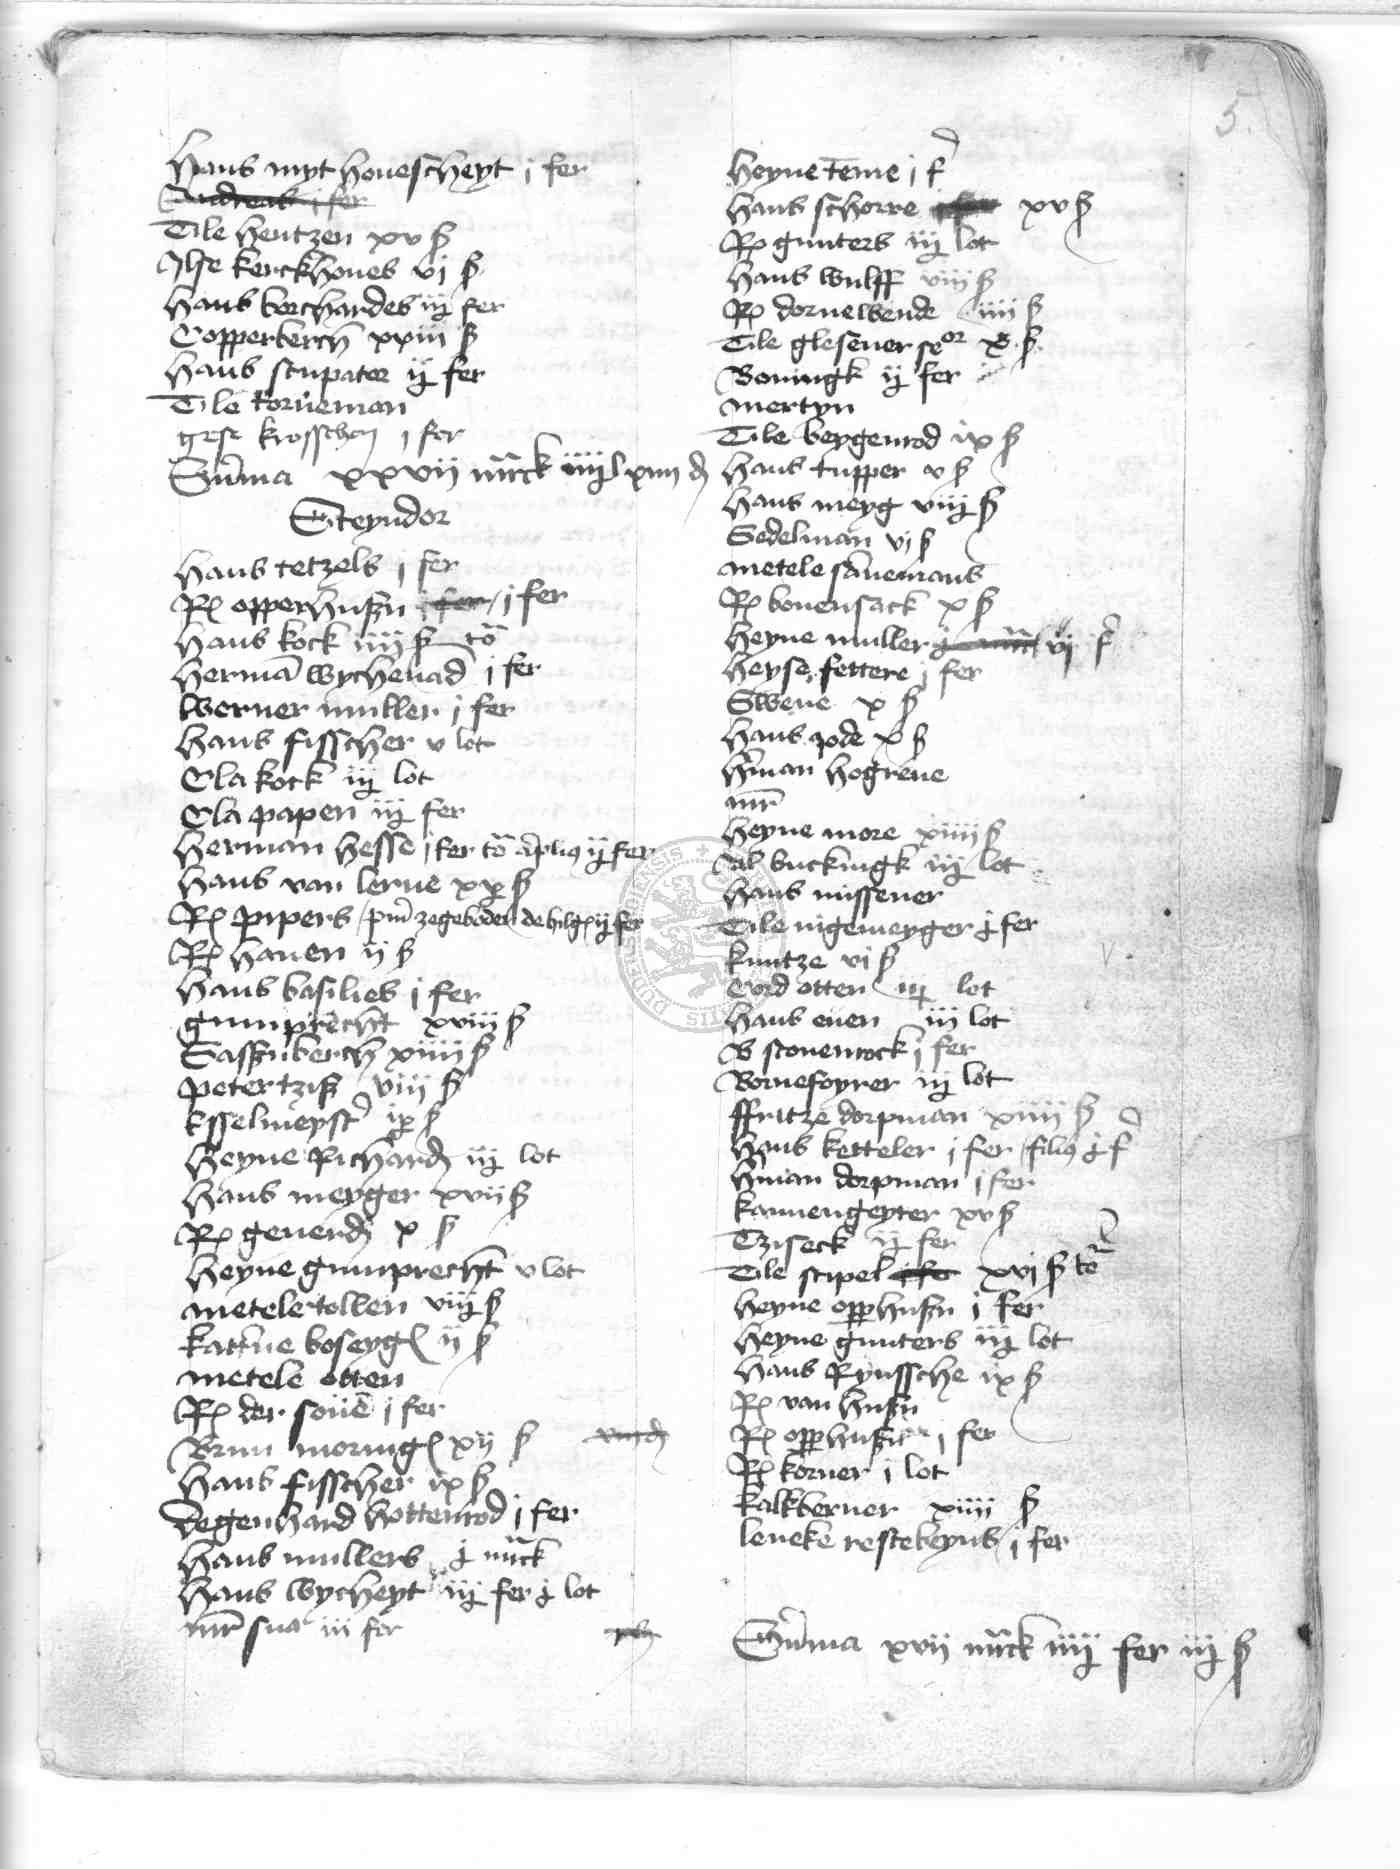 5.
Hans myt houescheyt j fer
Andreas j fer
Tile hentzen xv ß
Ilse kerckhoues vj ß
Hans borchardes iij fer
Copperberch xxiii ß
Hans stupator ij fer
Tile korneman
gese krosschen j fer
Summa xxvii mrck iiij l xiiii d
Steyndor
Hans tetzels j fer
R opperhußn j fer
Hans kock iiii ß tō
Hermā wychenād j fer
Werner muller j fer
Hans fisscher v lot
Cla kock iij lot
Cla papen iij fer
Herman hesse j fer tō ij fer
Hans van lerne xx ß
R pipers zegeboden de hilg ij fer
R hauen ij ß
Hans basilies j fer
gumprecht xviii ß
Saßnberch xiiii ß
Peter tziß viii ß
Esselmeyst ix ß
Heyne Richard iij lot
Hans meyger xvii ß
R geuerd x ß
Heyne gumprecht v lot
Metele tollen viij ß
Katrine boseyg ij ß
Metele otten
R der j fer
Brun moring xij ß
Hans fisscher ix ß
Degenhard hottenrod j fer
Hans mullers j mrck
Hans wycheyt iij fer j lot
mr iii fer
Heyne teme j f
Hans schorre xv ß
R gunters iij lot
Hans wulff viii ß
R dornewende iiii ß
Tile glesener seor x ß
Boningk ij fer
Mertyn
Tile beygenrod ix ß
Hans tupper v ß
Hans meyg viij ß
Sedelman vj ß
Metele
R bouensack x ß
Heyne muller vj f
Heyse fettere j fer
Swene x ß
Hans pode x ß
Hman hogreue
mr
Heyne more xiiii ß
Al buckingk iij lot
Hans missener
Tile nigemeyger j fer
Kuntze vj ß
Cord otten iij lot
Hans euen iii lot
B stouenrock j fer
Bornefoyrer iij lot
ffritze dorpman xiiii ß
Hans ketteler j fer filius j f
Hman dorpman j fer
Kannengeyter xv ß
Tziseck ij fer
Tile stipel xvj ß tō
Heyne opphußn j fer
Heyne gunters iij lot
Hans Rynssche ix ß
R van hußn
R opphußn j fer
R korner j lot
Kalkberner xiiii ß
leneke restekeyns j fer
Summa xvii mrck iiij fer iij ß